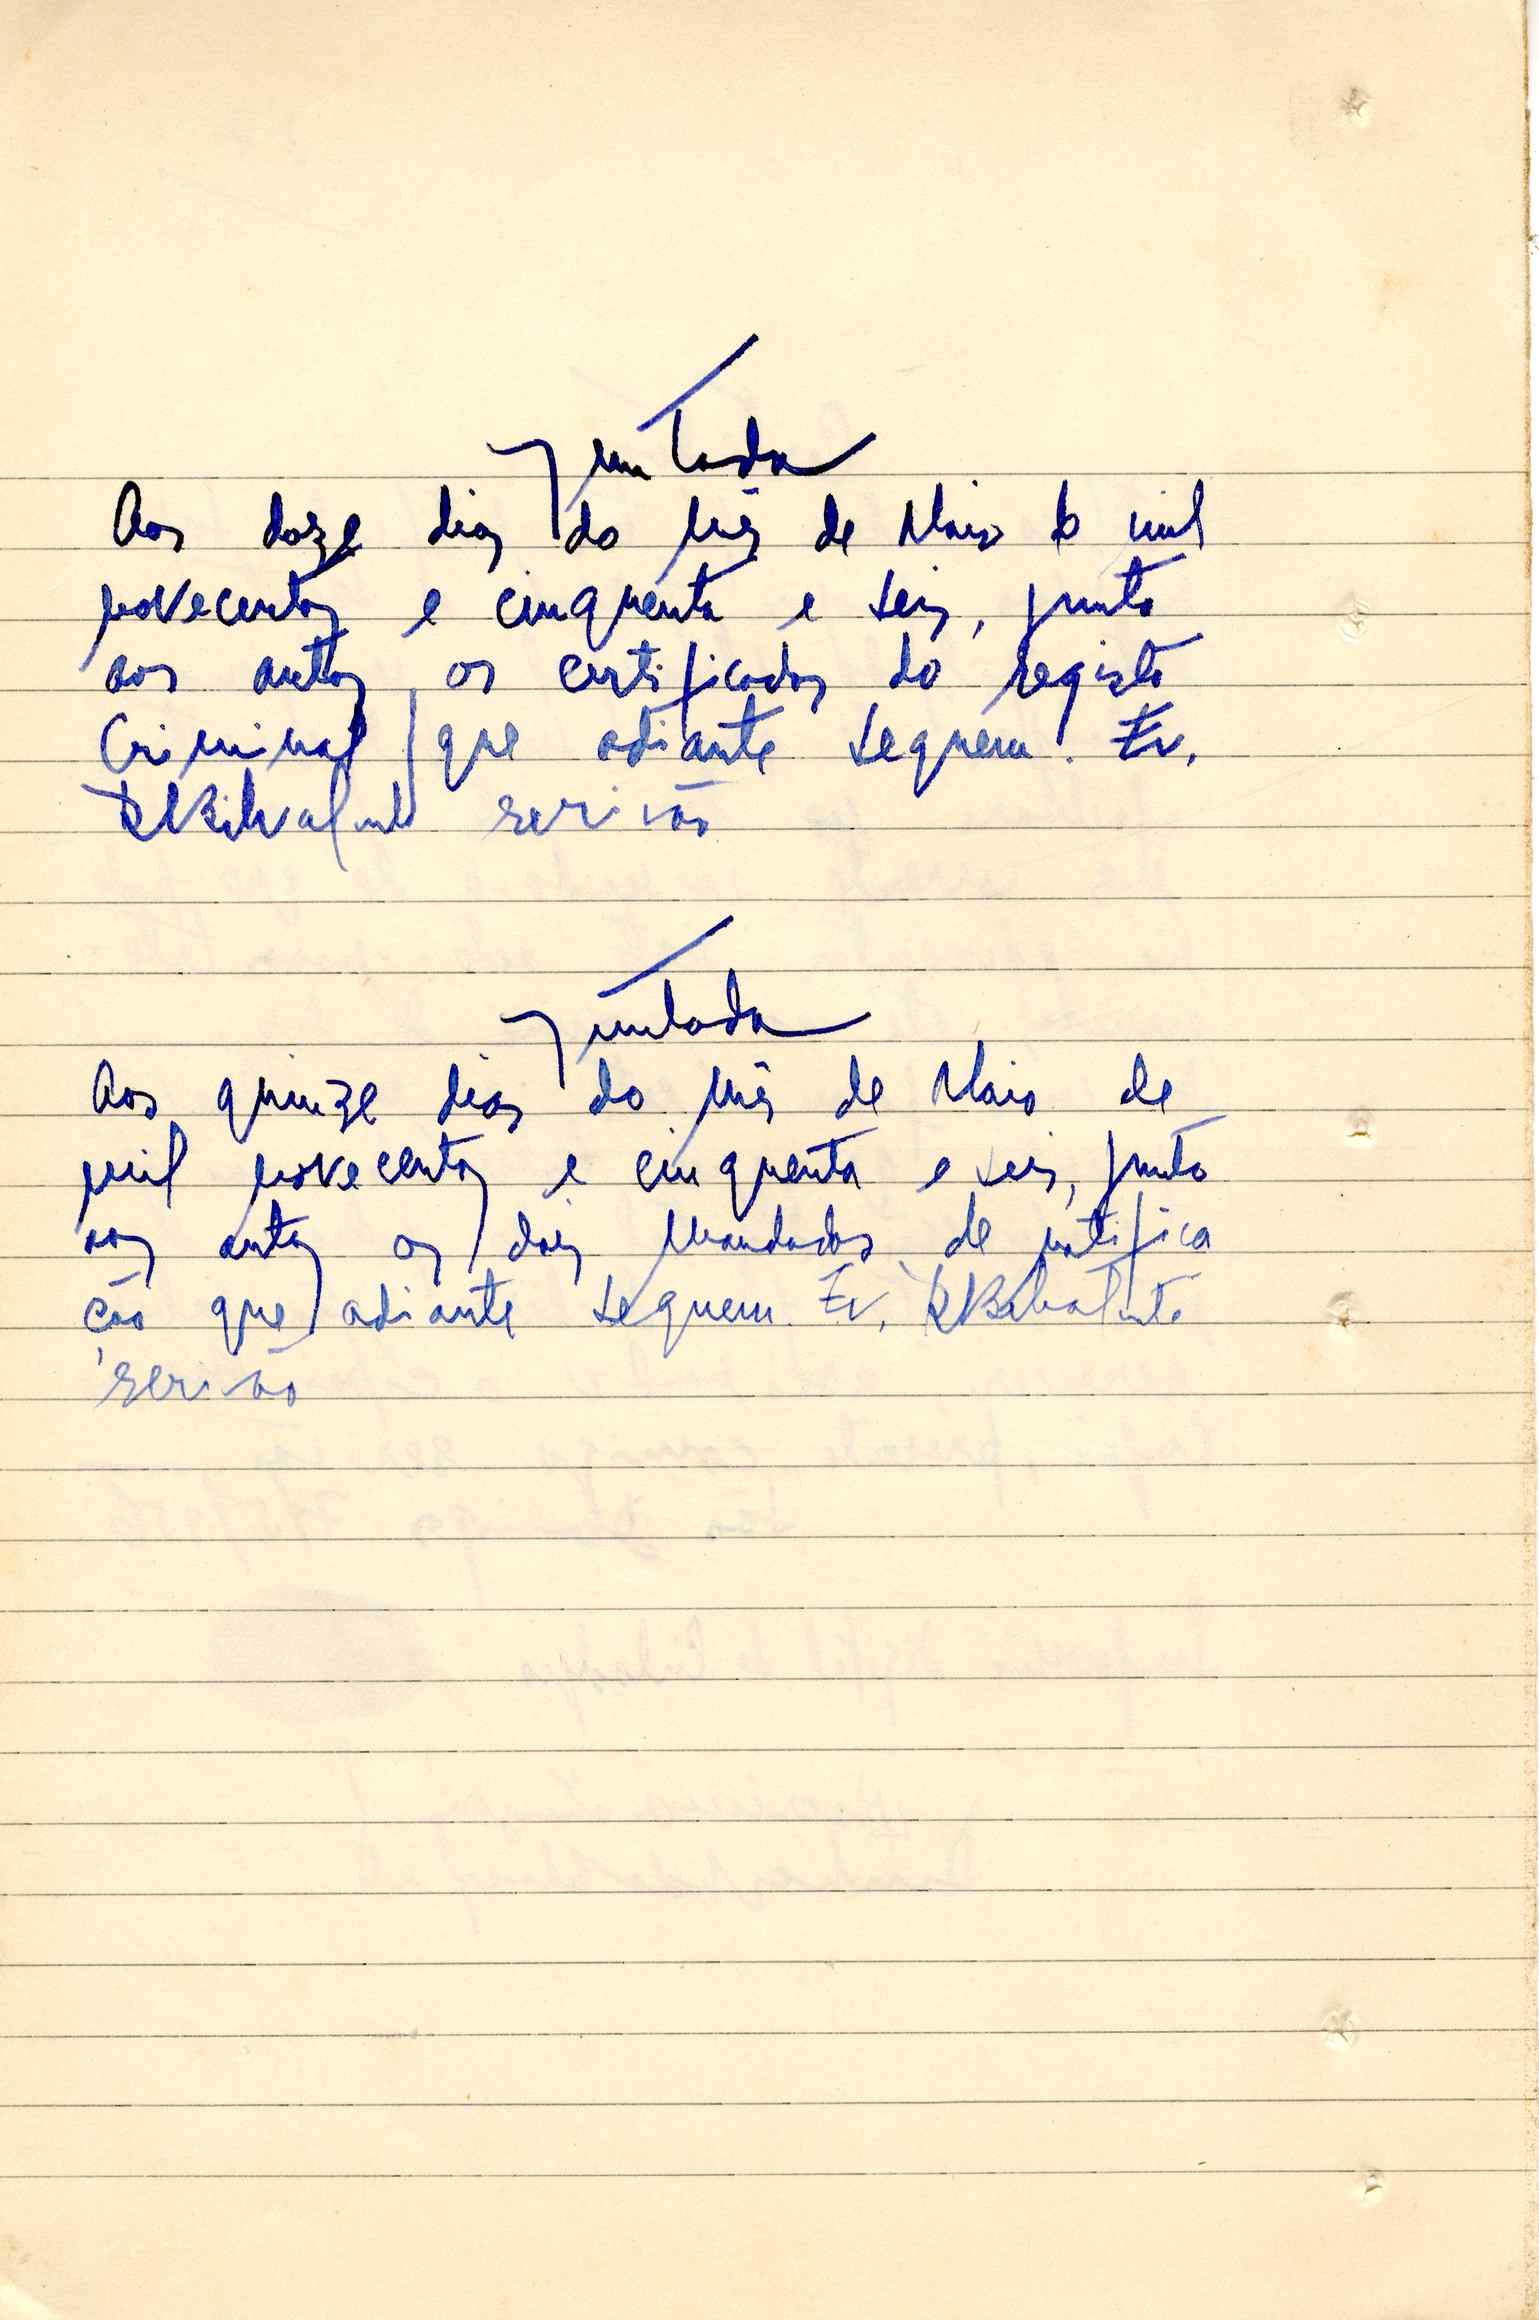 Juntada
Aos doze dias do mês de Maio de mil
novecentos e cinquenta e seis, junto
aos autos, os certificados do registo
Criminal que adiante seguem. Eu,
escrivão
Juntada
Aos quinze dias do mês de Maio de
mil novecentos e cinquenta e seis, junto
aos autos os dois mandados de notifica
ção que adiante seguem. Eu,
escrivão